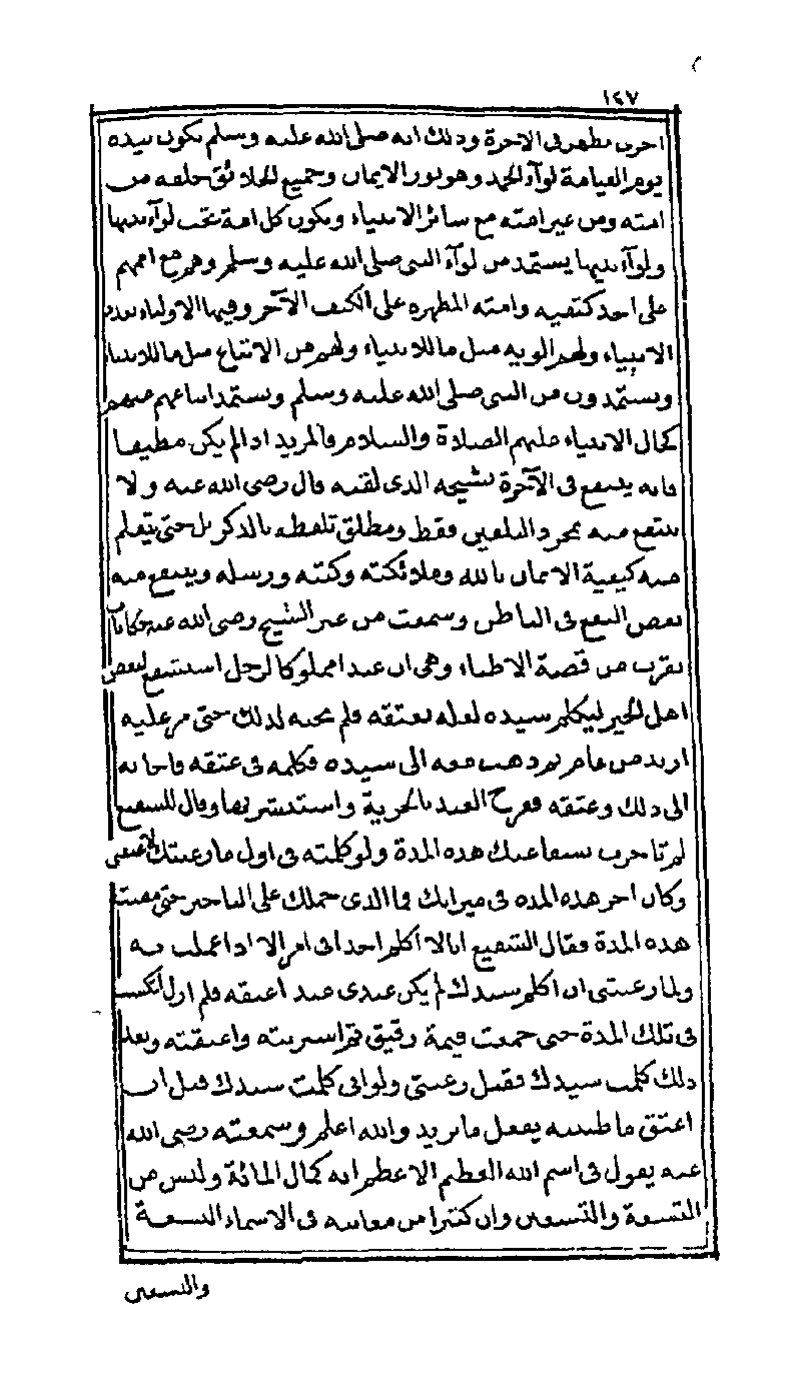 ١٤٧
اخرى تظهر فى الآخرة وذلك انه صلى الله عليه وسلم يكون بيده
يوم القيامة لوآء الحمد وهو نور الايمان وجميع الخلائق خلفه من
امته ومن غير امته مع سائر الانبياء ويكون كل امة تحت لوآء نبيها
ولوآء نبيها يستمد من لوآء النبى صلى الله عليه وسلم وهم مع اممهم
على احد كتفيه وامته المطهره على الكتف الآخر وفيها الاولياء بعدد
الانبياء ولهم الويه مثل ما للانبياء ولهم من الاتباع مثل ما للانبياء
ويستمدون من النبى صلى الله عليه وسلم ويستمد اتباعهم منهم
كحال الانبياء عليهم الصلاة والسلام فالمريد اذا لم يكن مطيقا
فانه ينتفع فى الآخرة بشيخه الذى لقنه قال رضى الله عنه ولا
ينتفع منه بمجرد التلقين فقط ومطلق تلفظه بالذكر بل حتى يتعلم
منه كيفية الايمان بالله وملائكته وكتبه ورسله وينتفع منه
بعض النفع فى الباطن وسمعت من غير الشيخ رضى الله عنه حكاية
تقرب من قصة الاطباء وهى ان عبدا مملوكا لرجل استشفع لبعض
اهل الخير ليكلم سيده لعله يعتقه فلم يجبه لذلك حتى مر عليه
ازيد من عام ثم ذهب معه الى سيده فكلمه فى عتقه فاجابه
الى ذلك وعتقه ففرح العبد بالحرية واستبشر بها وقال للشفيع
لم تاخرت بشفاعتك هذه المدة ولو كلمته فى اول ما رغبتك لاعتقنى
وكان اجر هذه المده فى ميزانك فما الذى حملك على التاخير حتى مضت
هذه المدة فقال الشفيع انا لا اكلم احدا فى امر الا اذا عملت به
ولما رغبتنى ان اكلم سيدك لم يكن عندى عبد اعتقه فلم ازل اتكسب
فى تلك المدة حتى جمعت قيمة رقيق ثم اشتريته واعتقته وبعد
ذلك كلمت سيدك فقبل رغبتى ولو انى كلمت سيدك قبل ان
اعتق ما ظننته يفعل ما تريد والله اعلم وسمعته رضى الله
عنه يقول فى اسم الله العظيم الاعظم انه كمال المائة وليس من
التسعة والتسعين وان كثيرا من معانيه فى الاسماء التسعة
والتسعين